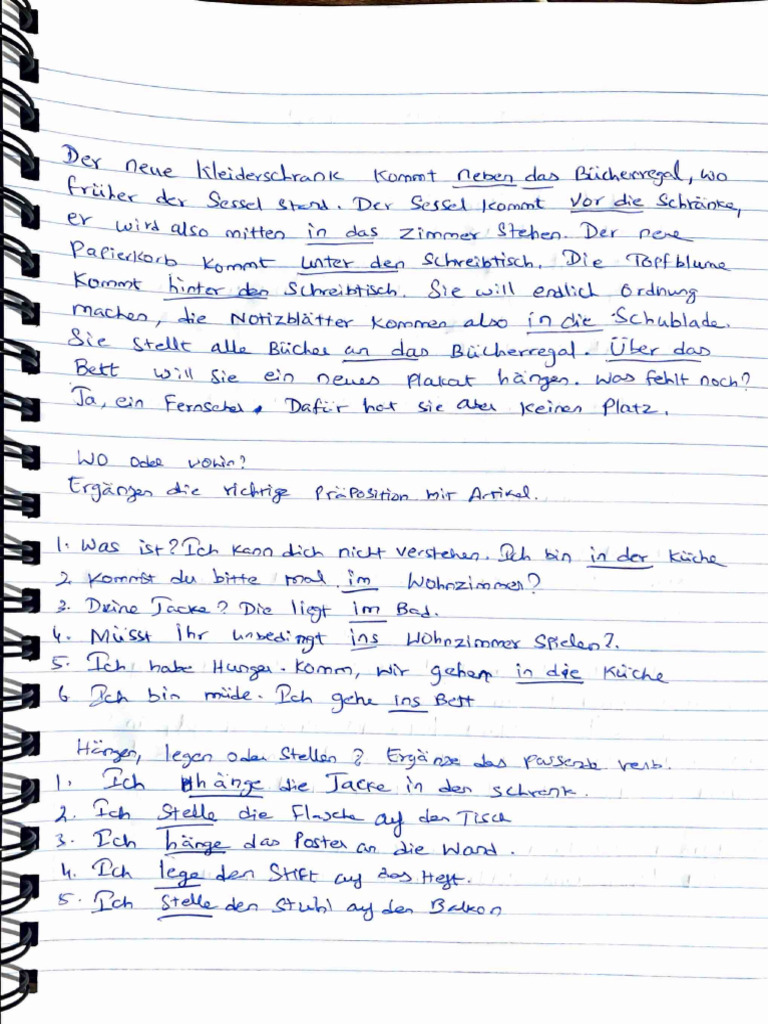 Der neue Kleiderschrank kommt neben das Bücherregal, wo
früher der Sessel stand. Der Sessel kommt vor die Schränke,
er wird also mitten in das Zimmer stehen. Der neue
Papierkorb kommt unter den Schreibtisch. Die Topfblume
kommt hinter den Schreibtisch. Sie will endlich Ordnung
machen, die Notizblätter kommen also in die Schublade.
Sie stellt alle Bücher an das Bücherregal. Über das
Bett will sie ein neues Plakat hängen. Was fehlt noch?
Ja, ein Fernseher. Dafür hat sie aber keinen Platz.
Wo oder wohin?
Ergänzen die richtige Präposition mit Artikel.
1. Was ist? Ich kann dich nicht verstehen. Ich bin in der Küche
2. Kommst du bitte mal im Wohnzimmer?
3. Deine Jacke? Die liegt im Bad.
4. Müsst ihr unbedingt ins Wohnzimmer spielen?
5. Ich habe Hunger. Komm, wir gehen in die Küche
6. Ich bin müde. Ich gehe ins Bett
Hängen, legen oder stellen? Ergänze das passende verb.
1. Ich hänge die Jacke in den schrank.
2. Ich stelle die Flasche auf den Tisch
3. Ich hänge das Poster an die Wand.
4. Ich lege den Stift auf das Heft.
5. Ich stelle den Stuhl auf den Balkon